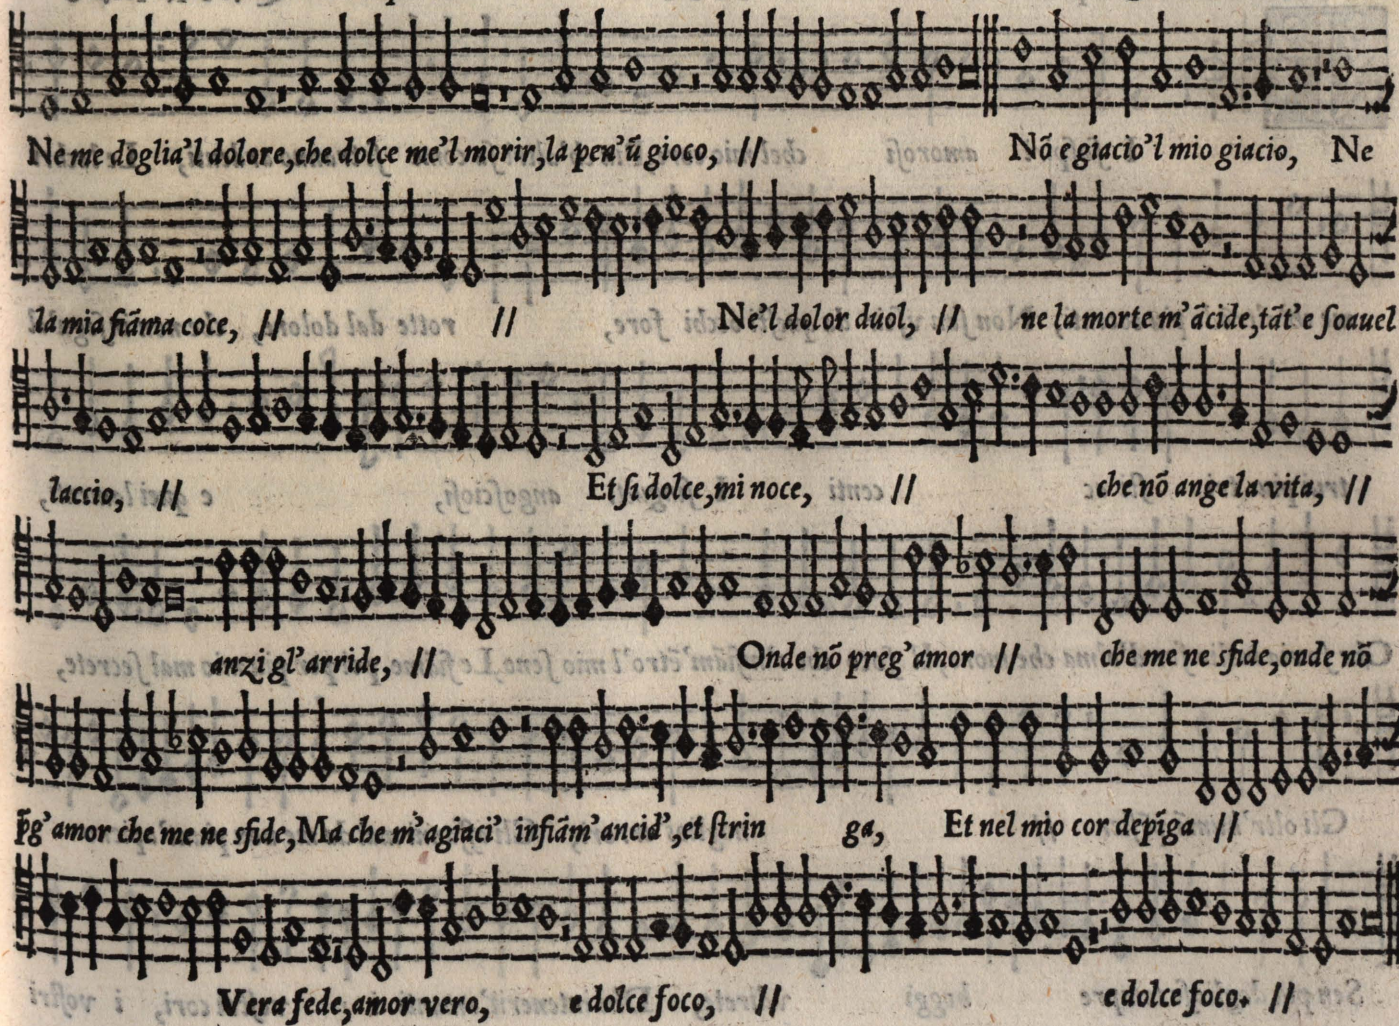 Ne me doglia'l dolore,che dolce me'l morir,la pen'ũ gioco, // Nõ e giacio'l mio giacio, Ne
la mia fiãma coce, // // Ne'l dolor duol, // ne la morte m'ãcide,tãt'e ſoauel
laccio, // Et ſi dolce,mi noce, // che nõ ange la vita, //
anzi gl'arride, // Onde nõ preg'amor // che me ne sfide,onde nõ
p̃g'amor che me ne sfide,Ma che m'agiaci' infiãm'ancid',et ſtrin ga, Et nel mio cor depĩga //
Vera fede,amor vero, e dolce foco, // e dolce foco. //